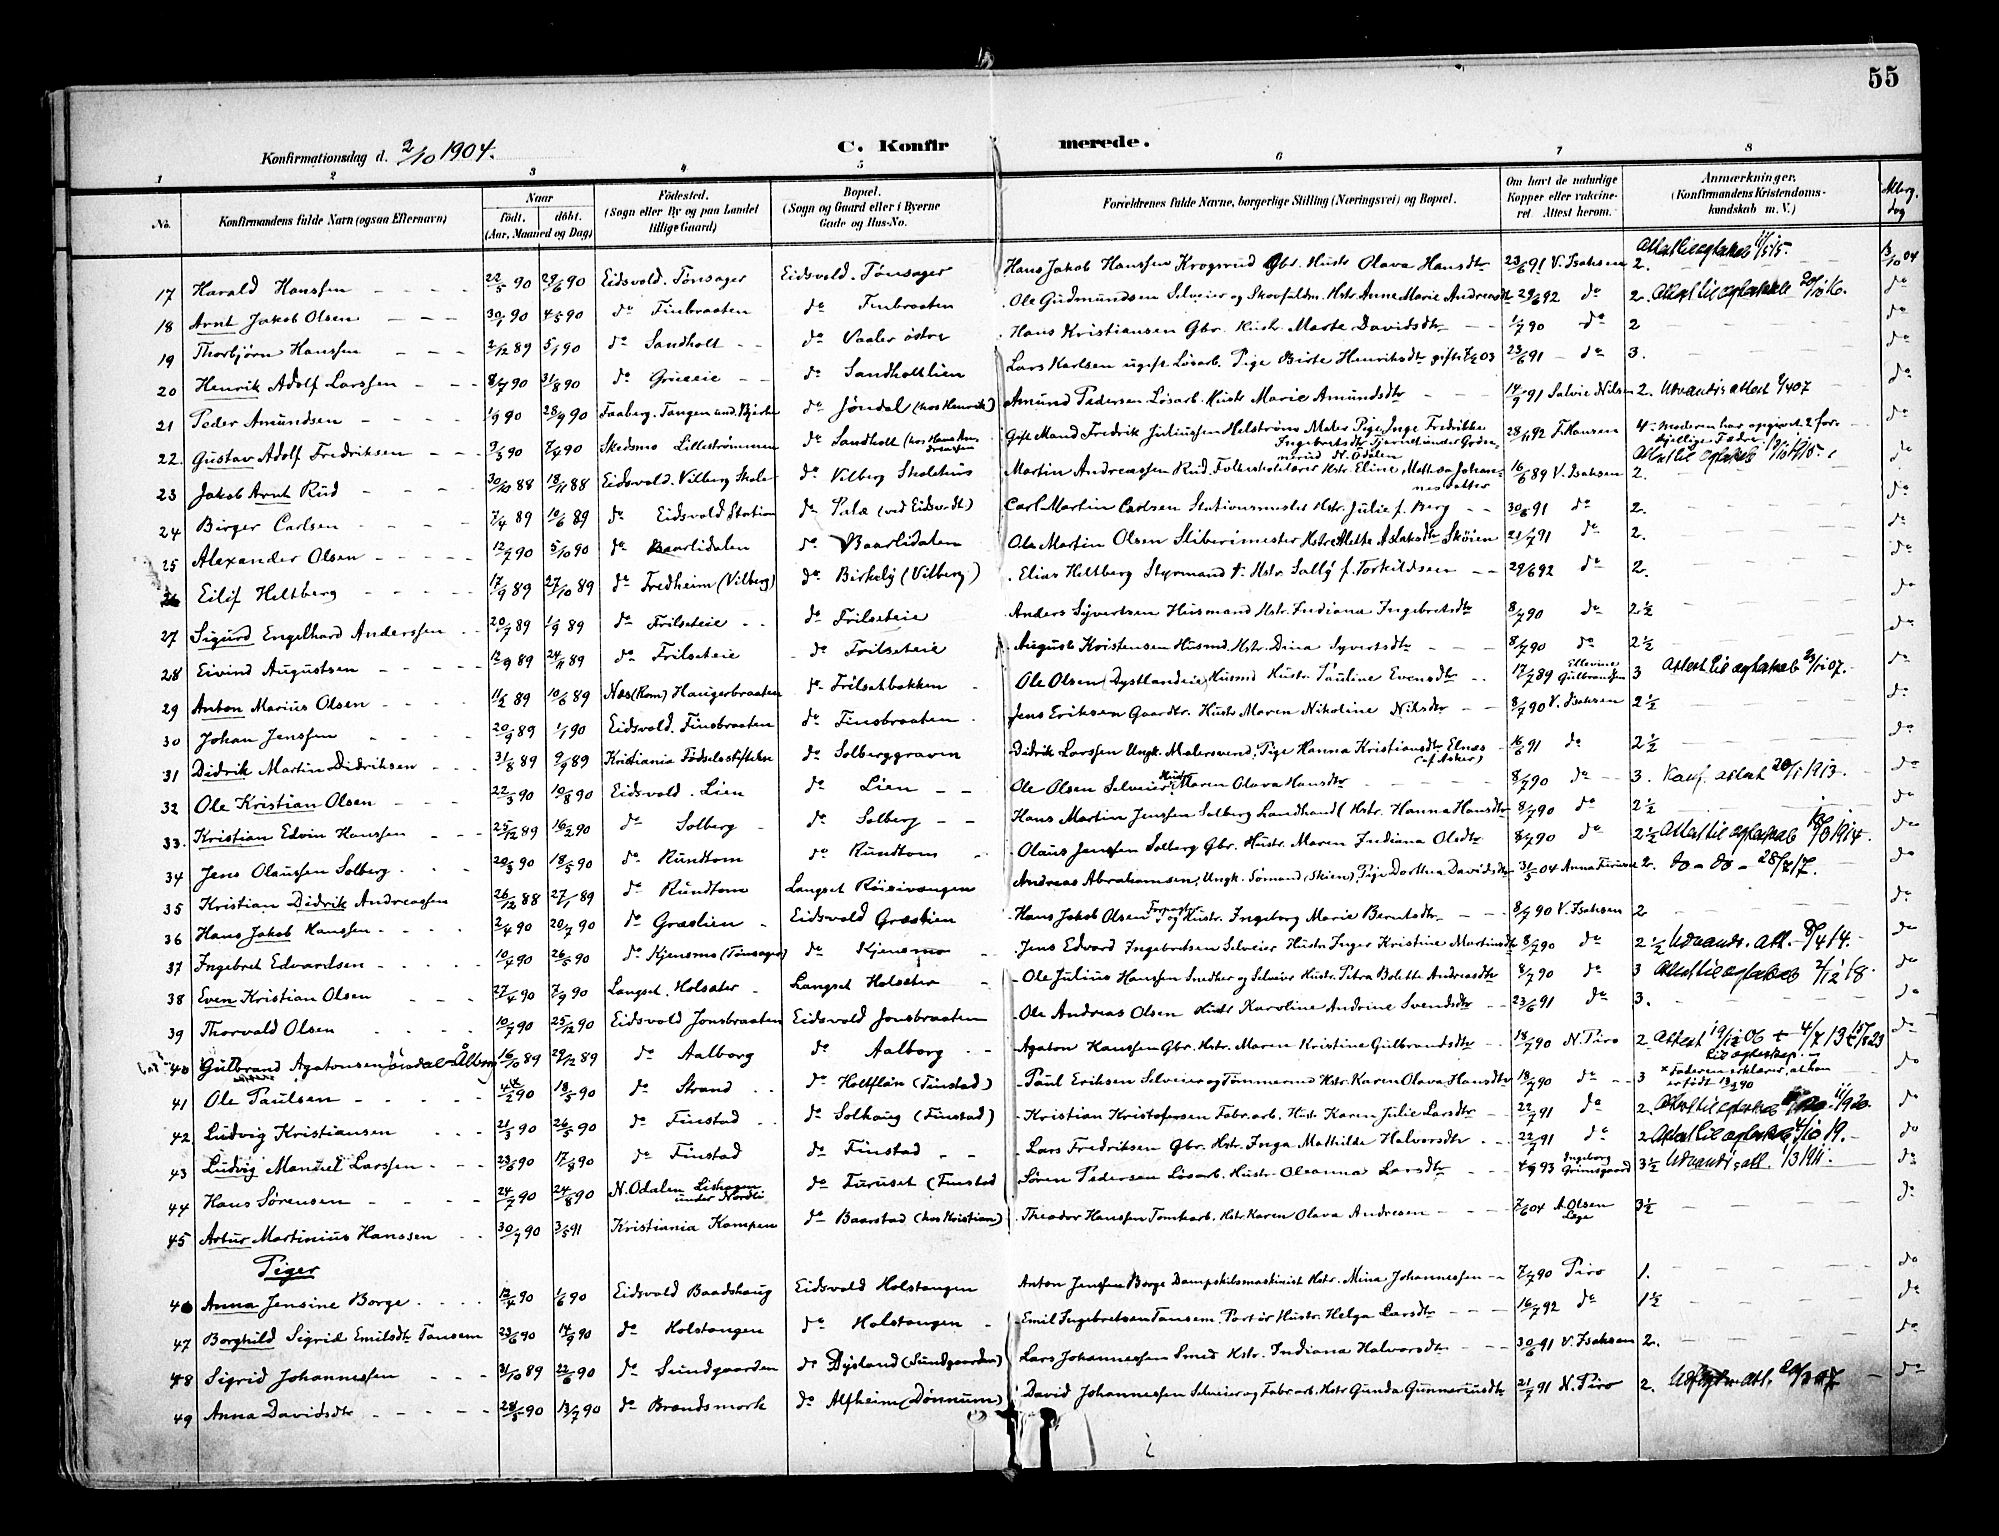 55
Konfirmationsdag d. 2/10 1904.
C. Konfir merede.
1 2 3 4 5 6 7 8
No. Konfirmandens fulde Navn (ogsaa Efternavn) Naar født. døbt. (Aar, Maaned og Dag) Fødested. (Sogn eller By og paa Landet tillige Gaard) Bopæl. (Sogn og Gaard eller i Byerne Gade og Hus-No. Forældrenes fulde Navne, borgerlige Stilling (Næringsvei) og Bopæl. Om havt de naturlige Kopper eller vaccineret Attest herom. Anmærkninger, (Konfirmandens Kristendomskundskab m. V.)
17 Harald Hanssen 22/5 90 29/6 90 Eidsvold. Tønsager Eidsvold. Tønsager Hans Jakob Hanssen Krogsrud Gbr. Hustr Olava Hansdtr 23/6 91 V. Isaksen 2. 3/10 04
18 Arnt Jakob Olsen 30/1 90 4/5 90 do Finbraaten do Finbraaten Ole Gudmundsen Selveier og Skovfuldm. Hstr. Anne Marie Andreasdtr 29/6 92 do 2. do
19 Thorbjørn Hanssen 2/12 89 5/1 90 do Sandholt do Vaaler østre Hans Kristiansen Gbr. Hustr. Marte Davidsdtr 1/7 90 do 2 do
20 Henrik Adolf Larssen 8/7 90 31/8 90 do Grueeie do Sandholtlien Lars Karlsen ugift Løsarb. Pige Birte Henriksdtr 23/6 91 do 3. do
21 Peder Amundsen 1/9 90 28/9 90 Faaberg. Tangen und. Bjerke do Jøndal (hos Henrik) Amund Pedersen Løsarb. Hustr Marie Amundsdtr 14/9 91 Salvie Nilsen 2. Udvandr. attest do
22. Gustav Adolf Fredriksen 9/3 90 7/4 90 Skedsmo Lillestrømmen do Sandholt Gift Mand Fredrik Juliussen Helstrøm Moder Pige Inge Fredrikke Ingebretsdtr 28/11 92 J. Hansen 4 - Moderen har opgivet 2 forskjellige Fædre. do
23 Jakob Arnt Rud 30/10 88 18/11 88 Eidsvold. Vilberg Skole do Vilberg Skolehus Martin Andreassen Rud. Folkeskolelærer Hstr. Eline Mathea Johannesdatter 16/6 89 V. Isaksen 2. do
24 Birger Carlsen 7/4 89 10/6 89 do Eidsvold Station do Palæ (ved Eidsvold) Carl Martin Carlsen Stationsmester Hstr. Julie f. Berg 30/6 91 do 2. do
25 Alexander Olsen 12/7 90 5/10 90 do Baarlidalen do Baarlidalen Ole Martin Olsen Slibermester Hstr. Alette Aslaksdtr Skøien 21/7 91 do 2. do
26 Eilif Heltberg 17/9 89 27/10 89 do Fredheim (Vilberg) do Birkely (Vilberg) Elias Heltberg Styrmand † Hstr. Sally f. Torkildsen 29/6 92 do 2. do
27 Sigurd Engelhard Anderssen 20/7 89 1/9 89 do Frilseteie do Frilseteie Anders Syvertsen Husmand Hstr. Indiana Ingebretsdtr 8/7 90 do 2½ do
28 Eivind Augustsen 12/9 89 24/11 89 do Frilseteie do Frilseteie August Kristensen Husmd. Hstr. Dina Syvertsdtr 8/7 90 do 2½ do
29 Anton Marius Olsen 11/2 89 10/6 89 Næs (Rom) Haugerbraaten do Frilsetbakken Ole Olsen (Dystlandeie) Husmd Hustr. Pauline Evensdtr 17/7 89 Ellevine Gulbrandsen 3 do
30 Johan Jenssen 20/9 89 1/1 90 Eidsvold. Finsbraaten do Finsbraaten Jens Eriksen Gaardbr. Hustr Maren Nikoline Nilsdtr 8/7 90 V. Isaksen 2½ do
31 Didrik Martin Didriksen 31/8 89 9/9 89 Kristiania Fødselsstiftelse do Solberggraven Didrik Larssen Ungk. Malersvend. Pige Hanna Kristiansdtr Elnæs (af Asker) 16/6 91 do 2½ do
32 Ole Kristian Olsen 22/3 90 10/8 90 Eidsvold. Lien do Lien Ole Olsen Selveier Hustr. Maren Olava Hansdtr 8/7 90 do 3. Konf. attest 20/1 1913. do
33. Kristian Edvin Hanssen 25/12 89 16/2 90 do Solberg do Solberg Hans Martin Jenssen Solberg Landhandl. Hstr. Hanna Hansdtr 8/7 90 do 2½ do
34 Jens Olaussen Solberg 20/3 90 18/5 90 do Rundtom do Rundtom Olaus Jenssen Solberg Gbr. Hustr. Maren Indiana Olsdtr 8/7 90 do 2½ do
35 Kristian Didrik Andreassen 26/12 88 27/1 89 do Rundtom Langset Røisivangen Andreas Abrahamsen, Ungk. Sømand (Skien), Pige Dorthea Davidsdtr 31/5 04 Anna Furuset 2. do - do - do
36 Hans Jakob Hanssen 2/4 90 20/7 90 do Græslien Eidsvold Græslien Hans Jakob Olsen Forpagter og Hustr. Ingeborg Marie Berntsdtr 8/7 90 V. Isaksen 2 do
37 Ingebret Edvardsen 10/4 90 26/5 90 do Kjensmo (Tønsager) do Kjensmo Jens Edvard Ingebretsen Selveier Hustr. Inger Kristine Martinsdtr 8/7 90 do 2½ Udvandr. att. do
38 Even Kristian Olsen 27/4 90 7/9 90 Langset. Holsæter Langset Holsæter Ole Julius Hanssen Snedker og Selveier Hustr. Petra Bolette Andreasdtr 8/7 90 do 3 do
39 Thorvald Olsen 10/7 90 25/12 90 Eidsvold Jonsbraaten Eidsvold Jonsbraaten Ole Andreas Olsen Hustr Karoline Andrine Svendsdtr 23/6 91 do 3. do
40 Gulbrand Agatonsen Jøndal-Ålborg 16/10 89 29/12 89 do Aalborg do Aalborg Agaton Hanssen Gbr. Hstr. Maren Kristine Gulbrandsdtr 18/7 90 N. Piro 2. Attest 19/12 06 + 4/7 13 do
41 Ole Paulsen 18/5 90 do Strand do Holtflain (Finstad) Paul Eriksen Selveier og Tømmermd Hstr. Karen Olava Hansdtr 18/7 90 do 3 * Faderen erklærer, at han er født do
42 Ludvig Kristiansen 21/3 90 26/5 90 do Finstad do Solhaug (Finstad) Kristian Kristofersen Fabr. arb. Hustr. Karen Julie Larsdtr 22/7 91 do 2. do
43 Ludvig Manuel Larssen 23/6 90 17/8 90 do Finstad do Finstad Lars Fredriksen Gbr. Hstr. Inga Mathilde Halvorsdtr 22/7 91 do 2 do
44 Hans Sørensen 24/7 90 24/8 90 N. Odalen Lishagen under Nordli do Furuset (Finstad Søren Pedersen Løsarb. Hustr. Oleanna Larsdtr 4/9 93 Ingeborg Grimsgaard 3½ Udvandr. att. 1/3 1911. do
45 Artur Martinius Hanssen 30/7 90 3/5 91 Kristiania Kampen do Baarstad (hos Kristian) Theodor Hanssen Tomtearb. Hstr. Karen Olava Andresen 7/6 04 A. Olsen Læge 3½ do
Piger
46 Anna Jensine Borge 12/4 90 1/6 90 Eidsvold Baadshaug Eidsvold Holstangen Anton Jenssen Borge Dampskibsmaskinist Hstr. Mina Johannessen 7/7 90 Piro 1. do
47 Borghild Sigrid Emilsdtr Tansem 23/6 90 14/9 90 do Holstangen do Holstangen Emil Ingebretsen Tansem. Portør Hustr. Helga Larsdtr 16/7 92 do 1½ do
48 Sigrid Johannessen 31/10 89 22/6 90 do Sundgaarden do Dysland (Sundgaarden) Lars Johannessen Smed Hstr. Indiana Halvorsdtr 30/6 91 V. Isaksen 2. do
49 Anna Davidsdtr 28/5 90 13/7 90 do Brændsmork do Alfheim (Dønnum) David Johannessen Selveier og Fabr. arb. Hstr Gunda Gunneriusdtr 21/7 91 N. Piro 2. do